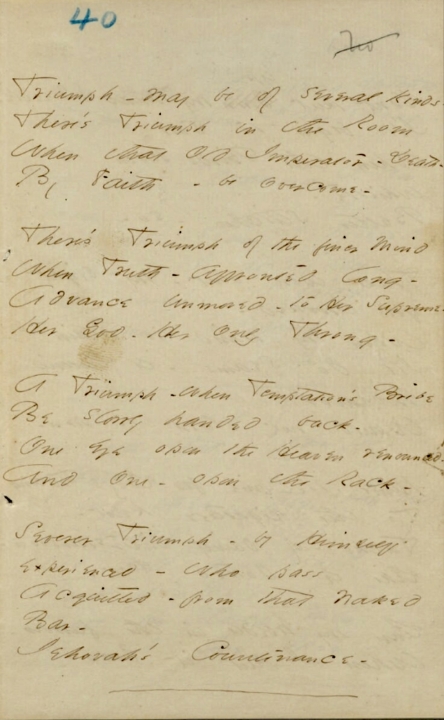 40
Two
Triumph - may be of several kinds
There's Triumph in the Room
When that Old Imperator - Death -
By Faith - be overcome -
There's Triumph of the finer Mind
When Truth - affronted long -
Advance unmoved - to Her Supreme -
Her God - Her only Throng -
A Triumph - when Temptation's Bribe
Be slowly handed back -
One eye upon the Heaven renounced -
And One - upon the Rack -
Severer Triumph - by Himself
Experienced - who pass
Acquitted - from that Naked
Bar -
Jehovah's Countenance -